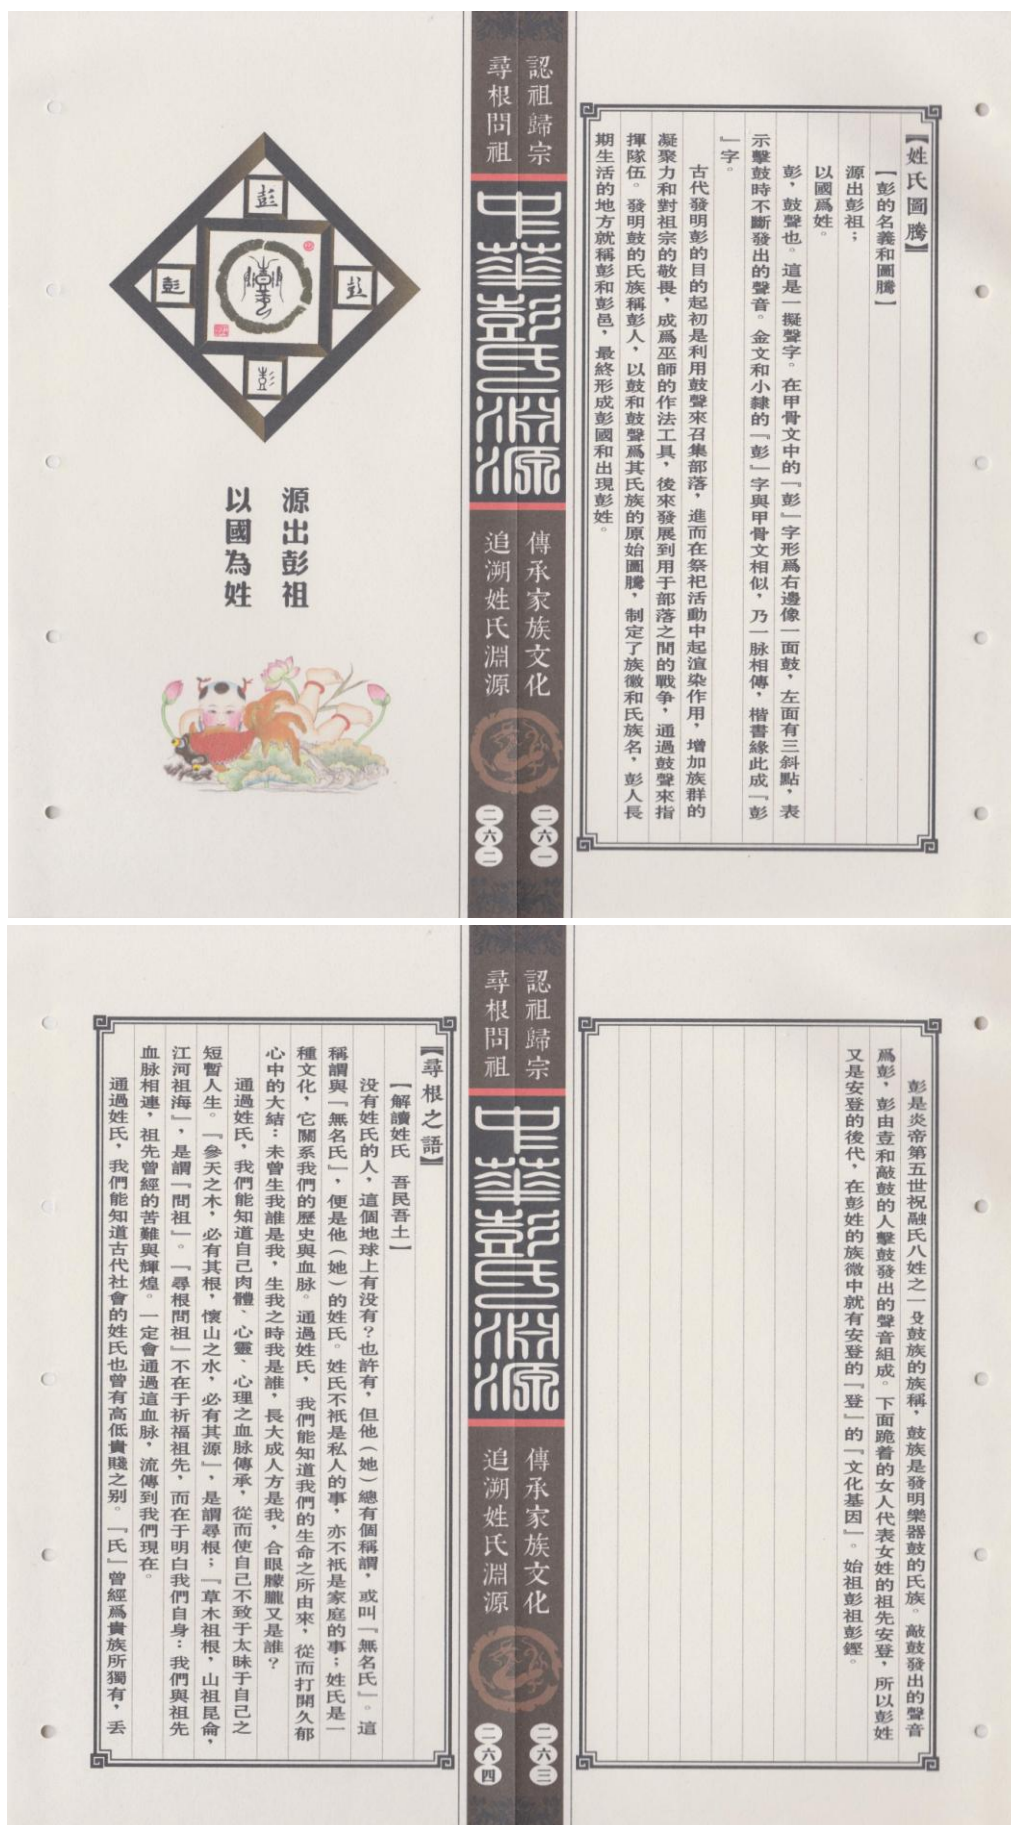 【姓氏圖騰】
【彭的名義和圖騰】
源出彭祖；
以國爲姓。
彭，鼓聲也。這是一擬聲字。在甲骨文中的『彭』字形爲右邊像一面鼓，左面有三斜點，表
示擊鼓時不斷發出的聲音。金文和小隸的『彭』字與甲骨文相似，乃一脉相傳，楷書緣此成『彭
』字。
古代發明彭的目的起初是利用鼓聲來召集部落，進而在祭祀活動中起渲染作用，增加族群的
凝聚力和對祖宗的敬畏，成爲巫師的作法工具，後來發展到用于部落之間的戰争，通過鼓聲來指
揮隊伍。發明鼓的氏族稱彭人，以鼓和鼓聲爲其氏族的原始圖騰，制定了族徽和氏族名，彭人長
期生活的地方就稱彭和彭邑，最終形成彭國和出現彭姓。
認祖歸宗
尋根問祖
中華彭氏淵源
傳承家族文化
追溯姓氏淵源
二六一
二六二
彭
彭
彭
彭
源出彭祖
以國為姓
彭是炎帝第五世祝融氏八姓之一殳鼓族的族稱，鼓族是發明樂器鼓的氏族。敲鼓發出的聲音
爲彭，彭由壴和敲鼓的人擊鼓發出的聲音組成。下面跪着的女人代表女姓的祖先安登，所以彭姓
又是安登的後代，在彭姓的族徵中就有安登的『登』的『文化基因』。始祖彭祖彭鏗。
認祖歸宗
尋根問祖
中華彭氏淵源
傳承家族文化
追溯姓氏淵源
二六三
二六四
【尋根之語】
【解讀姓氏 吾民吾土】
没有姓氏的人，這個地球上有没有？也許有，但他（她）總有個稱謂，或叫『無名氏』。這
稱謂與『無名氏』，便是他（她）的姓氏。姓氏不祇是私人的事，亦不祇是家庭的事；姓氏是一
種文化，它關系我們的歷史與血脉。通過姓氏，我們能知道我們的生命之所由來，從而打開久郁
心中的大結：未曾生我誰是我，生我之時我是誰，長大成人方是我，合眼朦朧又是誰？
通過姓氏，我們能知道自己肉體、心靈、心理之血脉傳承，從而使自己不致于太昧于自己之
短暫人生。『參天之木，必有其根，懷山之水，必有其源』，是謂尋根；『草木祖根，山祖昆侖，
江河祖海』，是謂『問祖』。『尋根問祖』不在于祈福祖先，而在于明白我們自身：我們與祖先
血脉相連，祖先曾經的苦難與輝煌。一定會通過這血脉，流傳到我們現在。
通過姓氏，我們能知道古代社會的姓氏也曾有高低貴賤之别。『氏』曾經爲貴族所獨有，丟